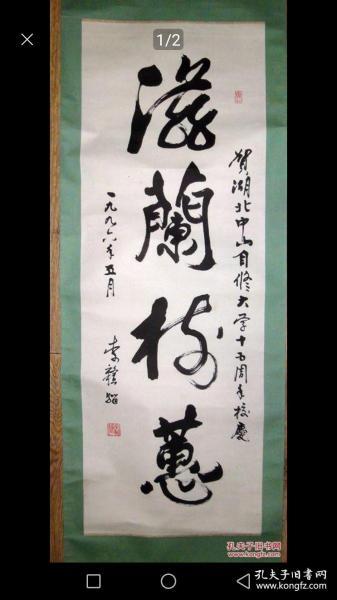 1/2
贺湖北中山自修大学十五周年校慶
滋蘭树蕙
一九九六年五月
孔夫子旧书网
www.kongfz.com
孔夫子旧书网
www.kongfz.com